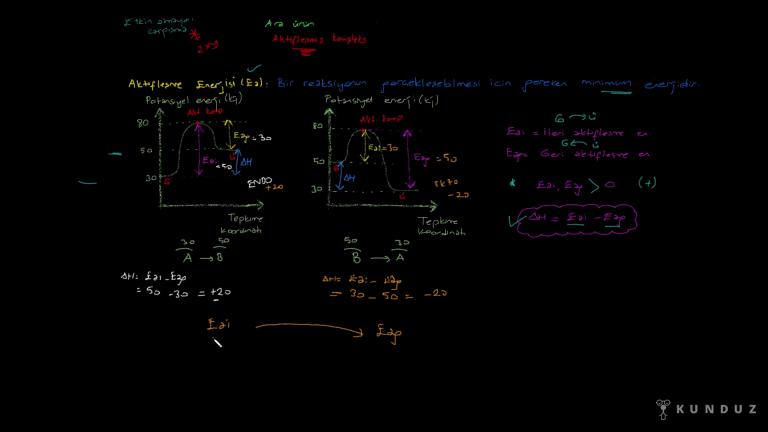 Etkin olmayan
çarpışma
2x9
Ara ürün
Aktifleşmiş kompleks
Aktifleşme Enerjisi (Ea): Bir reaksiyonun gerçekleşebilmesi için gereken minimum enerjidir.
Potansiyel enerji (kj)
Akt komp
80
50
30
Eag = 30
Eai = 50
ΔH
G
ENDO
+20
Tepkime
koordinatı
Potansiyel enerji (kj)
Akt komp
80
50
30
Eai=30
Eag = 50
ΔH
G
Ekzo
-20
Tepkime
koordinatı
G → Ü
Eai = ileri aktifleşme en
G ← Ü
Eag = Geri aktifleşme en
* Eai, Eag > 0 (+)
ΔH = Eai - Eag
30 50
A → B
50 30
B → A
ΔH = Eai - Eag
= 50 - 30 = +20
ΔH = Eai - Eag
= 30 - 50 = -20
Eai → Eag
KUNDUZ